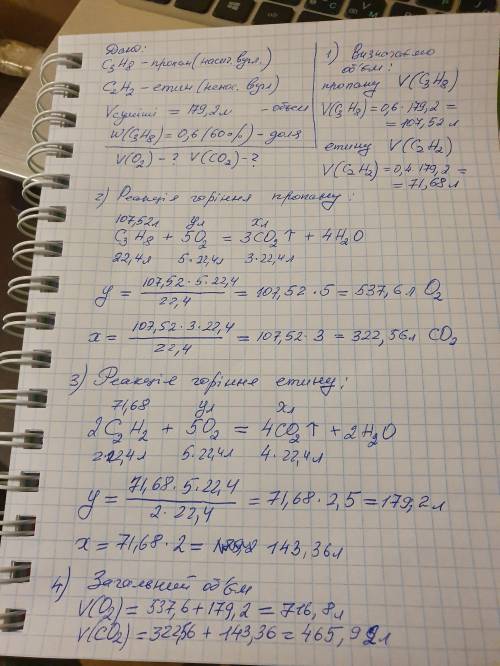 Дано:
C3H8 - пропан (насич. вугл.)
C2H2 - етин (ненас. вугл)
Vсуміші = 179,2 л - объем
W(C3H8) = 0,6 (60%) - доля
V(O2) - ? V(CO2) - ?
1) Визначаємо
об'єм:
пропану V(C3H8)
V(C3H8) = 0,6 · 179,2 =
= 107,52 л
етину V(C2H2)
V(C2H2) = 0,4 · 179,2 =
= 71,68 л
2) Реакція горіння пропану:
107,52л yл xл
C3H8 + 5O2 = 3CO2↑ + 4H2O
22,4л 5·22,4л 3·22,4л
y = 107,52 · 5 · 22,4 / 22,4 = 107,52 · 5 = 537,6 л O2
x = 107,52 · 3 · 22,4 / 22,4 = 107,52 · 3 = 322,56 л CO2
3) Реакція горіння етину:
71,68 yл xл
2C2H2 + 5O2 = 4CO2↑ + 2H2O
2·22,4л 5·22,4л 4·22,4л
y = 71,68 · 5 · 22,4 / 2 · 22,4 = 71,68 · 2,5 = 179,2 л
x = 71,68 · 2 = 143,36 л
4) Загальний об'єм
V(O2) = 537,6 + 179,2 = 716,8 л
V(CO2) = 322,56 + 143,36 = 465,92 л